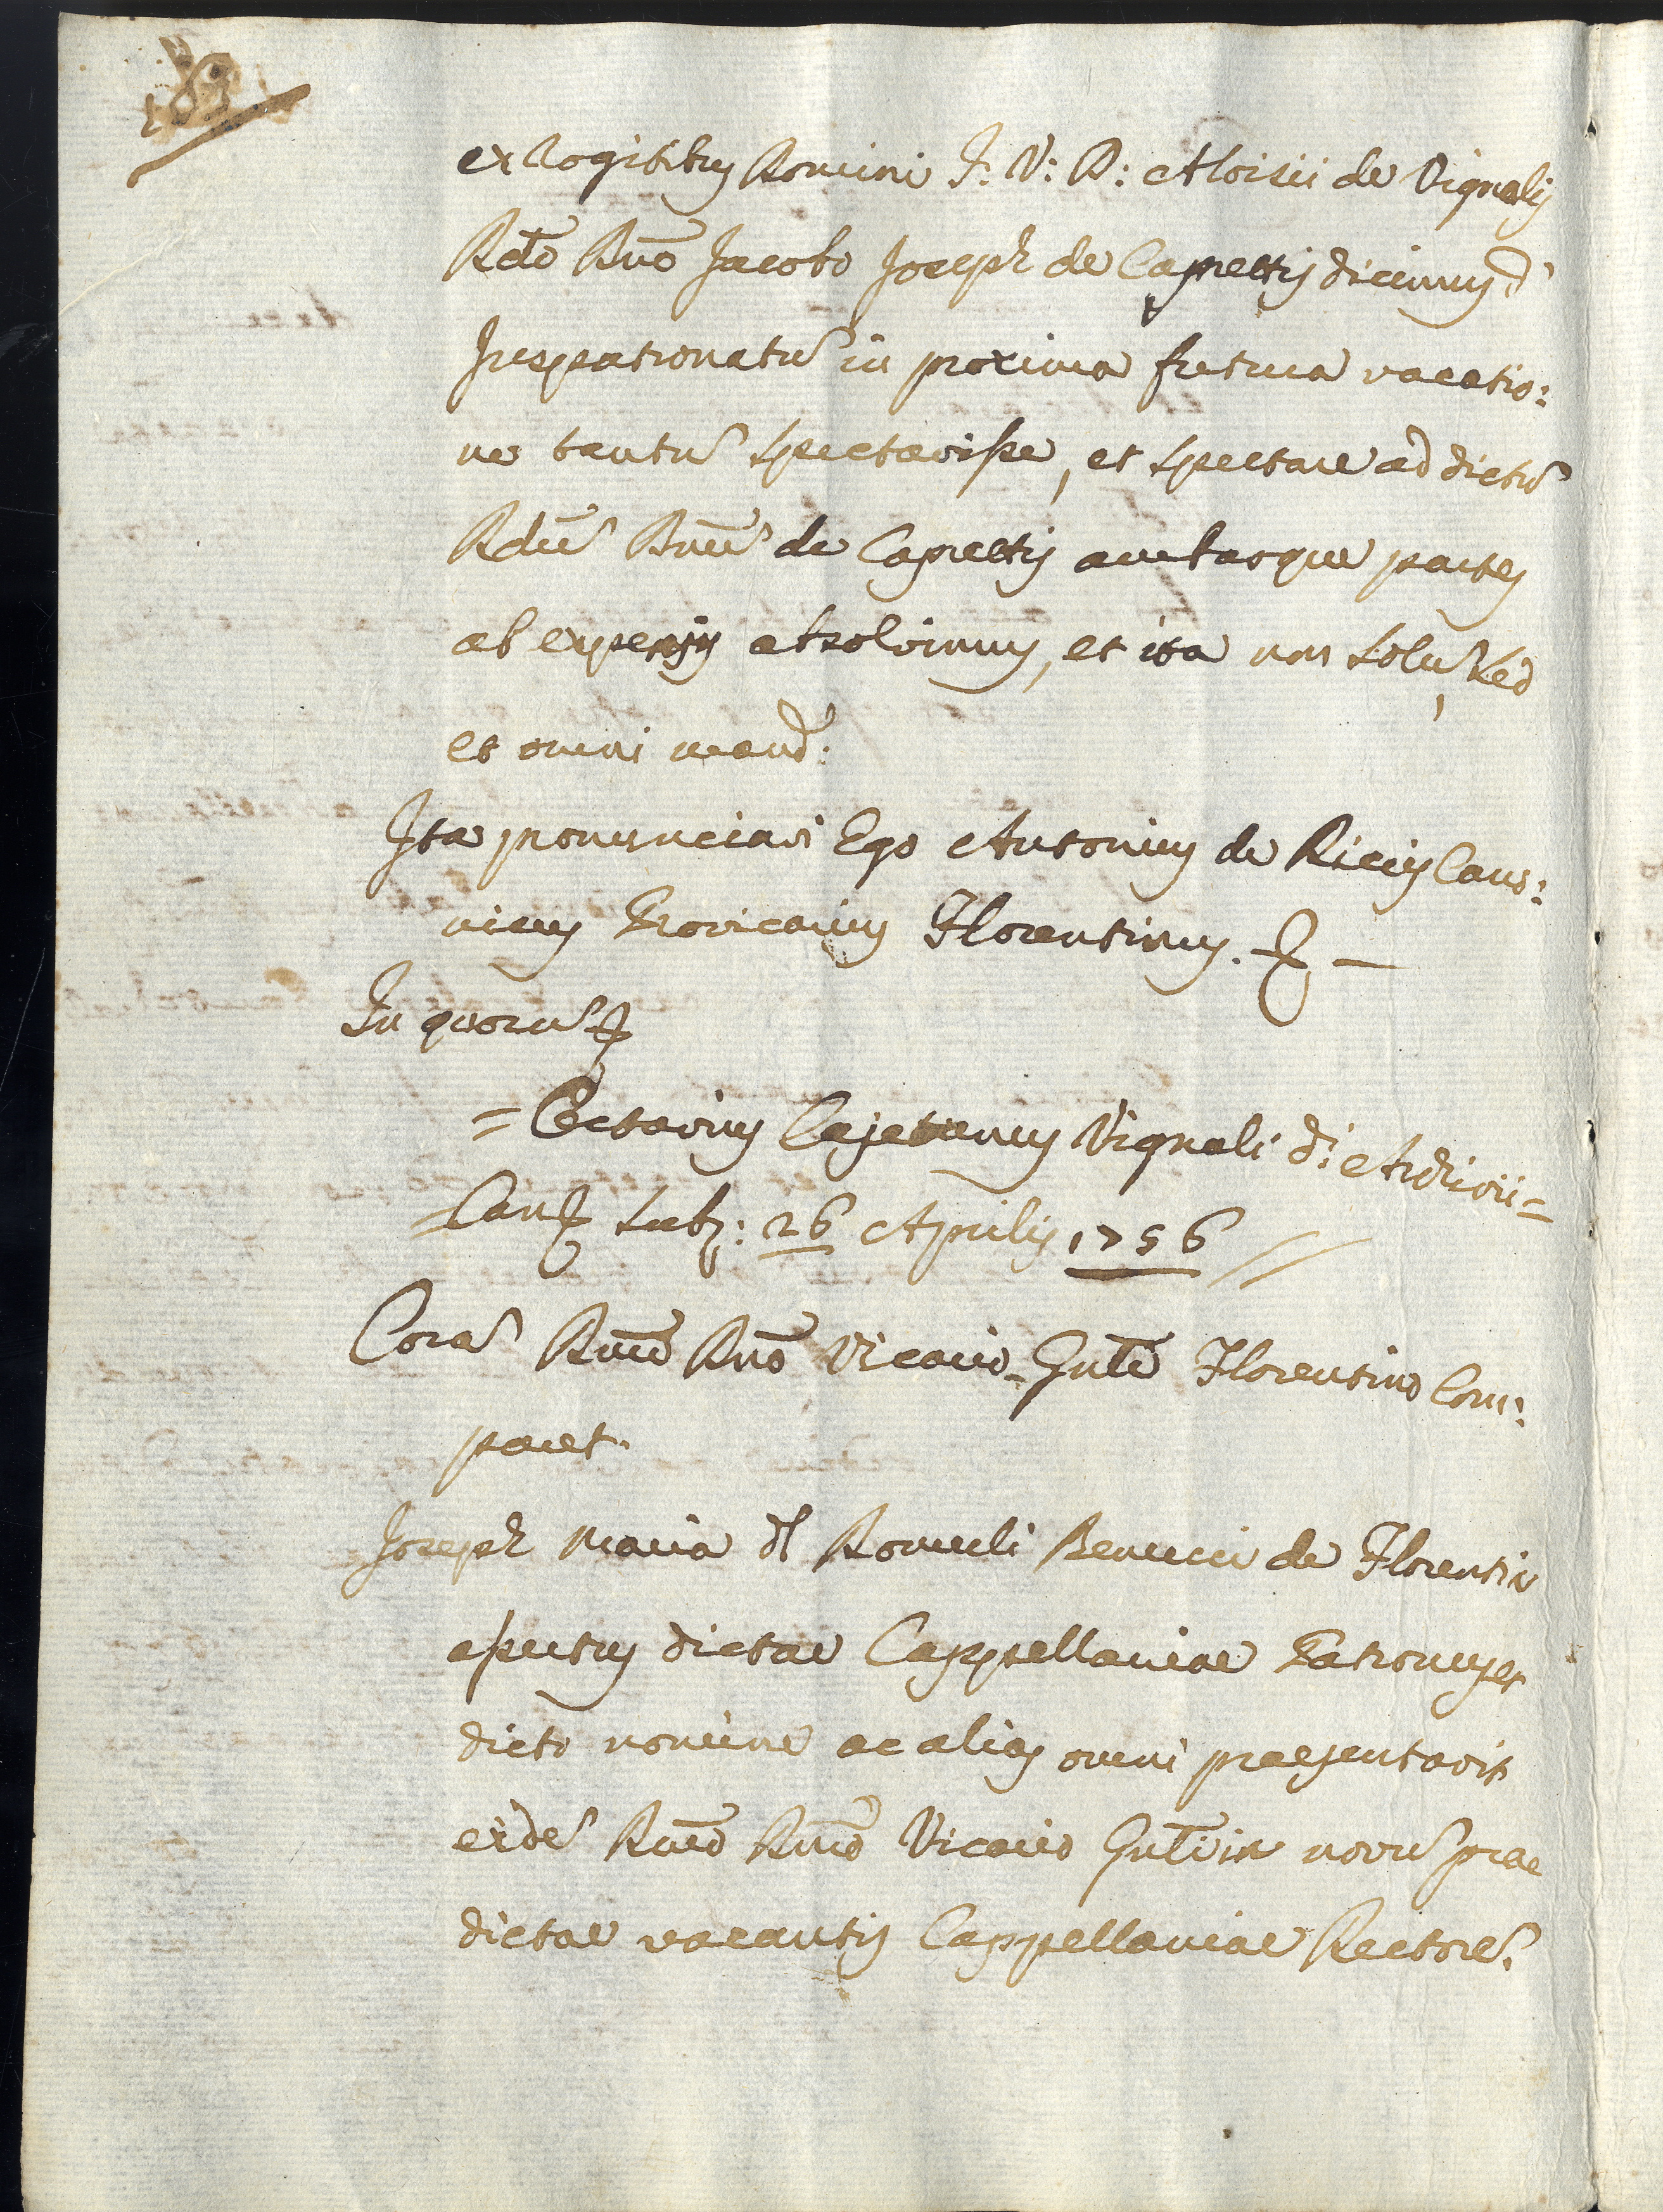 ex Rogitibus Domini J: V: D: Aloisii de Vignalis
Rdo Dno Jacobo Joseph de Caprettis dicimus d:
Juspatronatū in proxima futura vacatio:
ne tantū spectavisse, et spectare ad dictū
Rdū Dnū de Caprettis ambasque partes
ab expensis absolvimus, et ita non solū, sed
et omni meand:
Ita pronunciavi Ego Antonius de Riccis Cano:
nicus Provicarius Florentinus.
In quorū
= Octavius Cajetanus Vignali d: Archivii =
= Canc Subs: 26 Aprilis 1756 //
Corā Rmo Dno Vicario Gnli Florentino Com:
paret.
Joseph Maria Romuli Benucci de Florentia
assertus dictae Cappellaniae Patronus et
dicto nomine ac alias omni praesentavit
eidē Rmo Dno Vicario Gnli in novū prae
dictae vacantis Cappellaniae Rectorē.